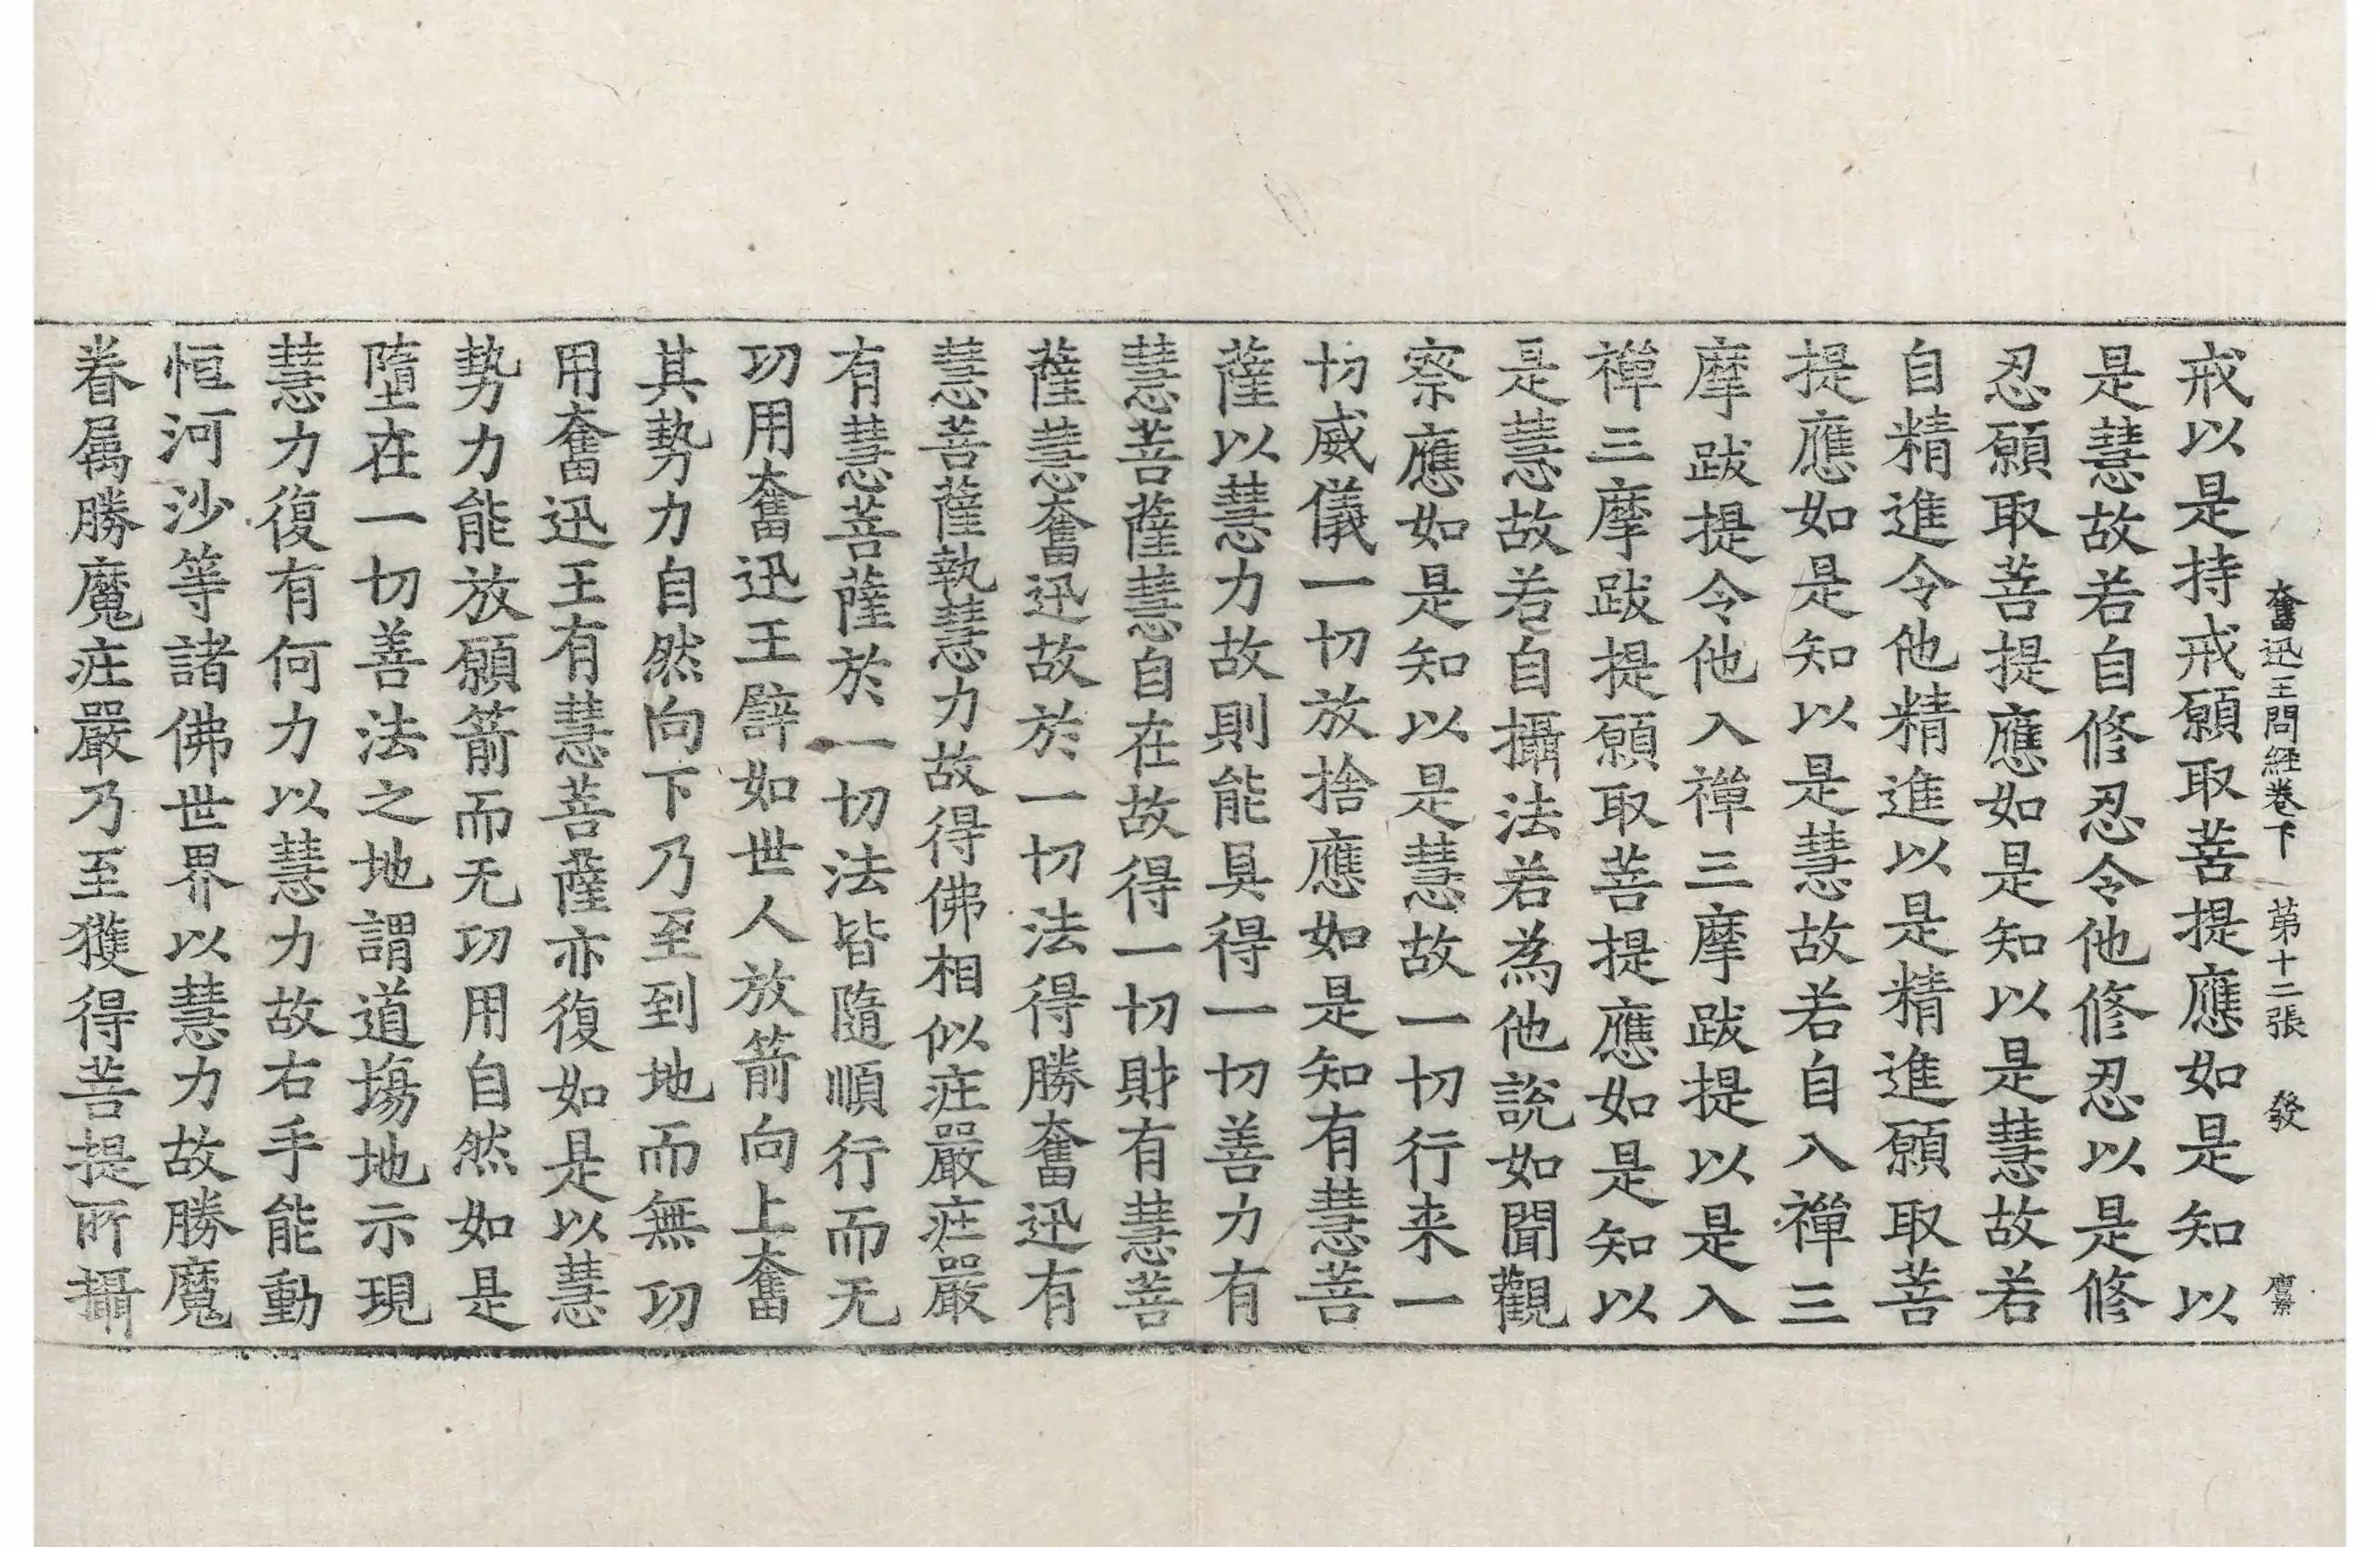 奮迅王問経卷下 第十二張 發
戒以是持戒願取菩提應如是知以
是慧故若自修忍令他修忍以是修
忍願取菩提應如是知以是慧故若
自精進令他精進以是精進願取菩
提應如是知以是慧故若自入禪三
摩跋提令他入禪三摩跋提以是入
禪三摩跋提願取菩提應如是知以
是慧故若自攝法若為他說如聞觀
察應如是知以是慧故一切行来一
切威儀一切放捨應如是知有慧菩
薩以慧力故則能具得一切善力有
慧菩薩慧自在故得一切財有慧菩
薩慧奮迅故於一切法得勝奮迅有
慧菩薩執慧力故得佛相似庄嚴庄嚴
有慧菩薩於一切法皆隨順行而无
功用奮迅王譬如世人放箭向上奮
其勢力自然向下乃至到地而無功
用奮迅王有慧菩薩亦復如是以慧
勢力能放願箭而无功用自然如是
墮在一切善法之地謂道場地示現
慧力復有何力以慧力故右手能動
恒河沙等諸佛世界以慧力故勝魔
眷属勝魔庄嚴乃至獲得菩提所攝